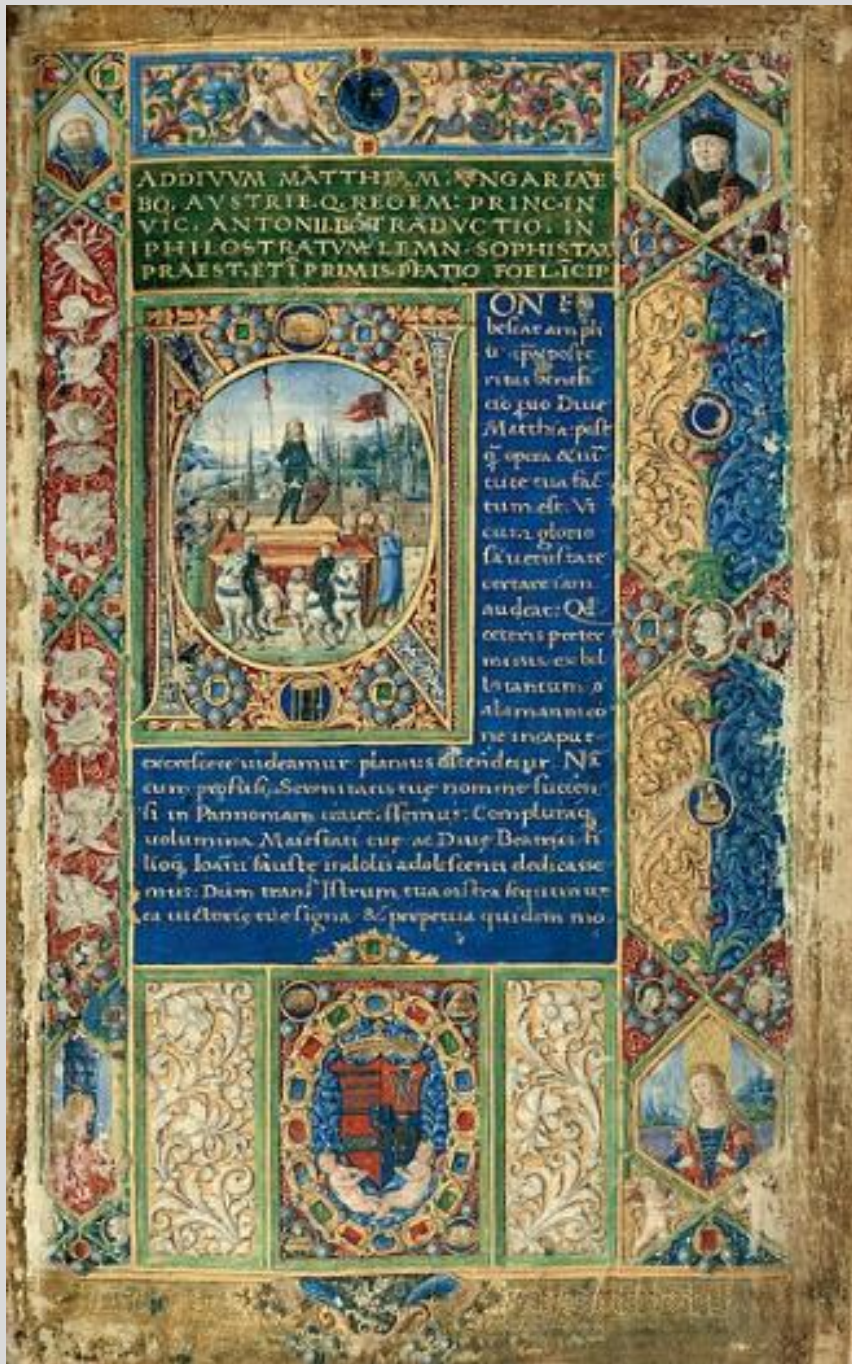 ADDIVVM MATTHIAM VNGARIAE
BQ. AVSTRIE.Q. REGEM: PRINC. IN
VIC. ANTONII. BŌ TRADVCTIO. IN
PHILOSTRATVM LEMN. SOPHISTAM
PRAEST. ET Ī PRIMIS. PFATIO FOEL. ĪCIP
N
ON
beſcat amph
cio tuo Diue
Matthia: poſt
q̄ opera & uir
tute tua fac
tum eſt. Vt
cum glorio
ſa uetuſtate
certare iam
audeat: Qd
ceteris preter
miſsis: ex bel
lo tantum
alamannico
ne in caput
excreſcere uideamur planius oſtendetur. Nā
cum Serenitatis tuę nomine ſuccen
ſi in Pannoniam ueniſſemus: Compluraq
uolumina Maieſtati tuę ac Diuę Beatrici fi
lioq Ioāni fauſtę indolis adoleſcenti dedicaſſe
mus: Dum tranſ Iſtrum tua caſtra ſequimur
ea uictorię tuę ſigna & perpetua quidem mo